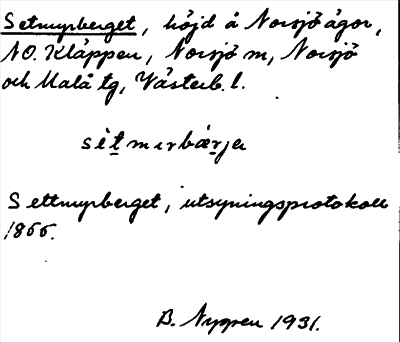 Setmyrberget, höjd å Norsjö ägor,
NO. Kläppen, Norsjö sn, Norsjö
och Malå tg, Västerb. l.
sètmyrbærje
Settmyrberget, utsyningsprotokoll
1866.
B. Nygren 1931.